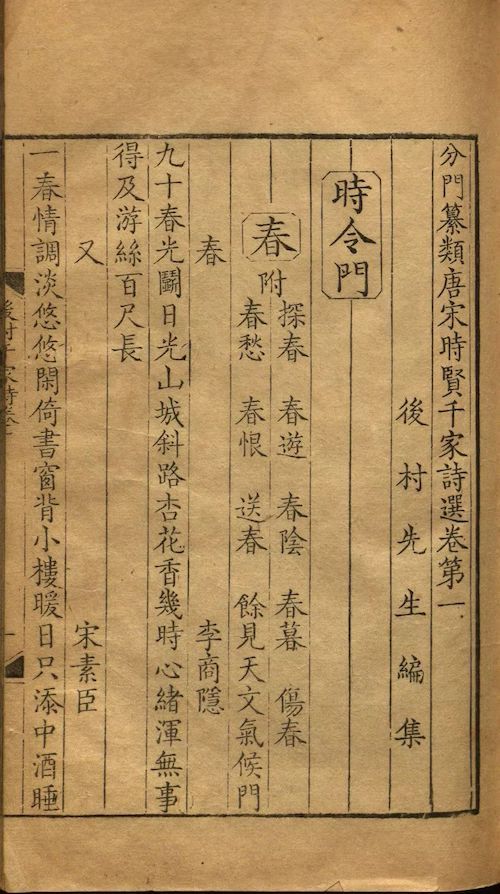 分門纂類唐宋時賢千家詩選卷第一
後村先生編集
時令門
春
附
探春 春遊 春陰 春暮 傷春
春愁 春恨 送春 餘見天文氣候門
春 李商隱
九十春光鬭日光山城斜路杏花香幾時心緒渾無事
得及游絲百尺長
又 宋素臣
一春情調淡悠悠閑倚書窗背小樓暖日只添中酒睡